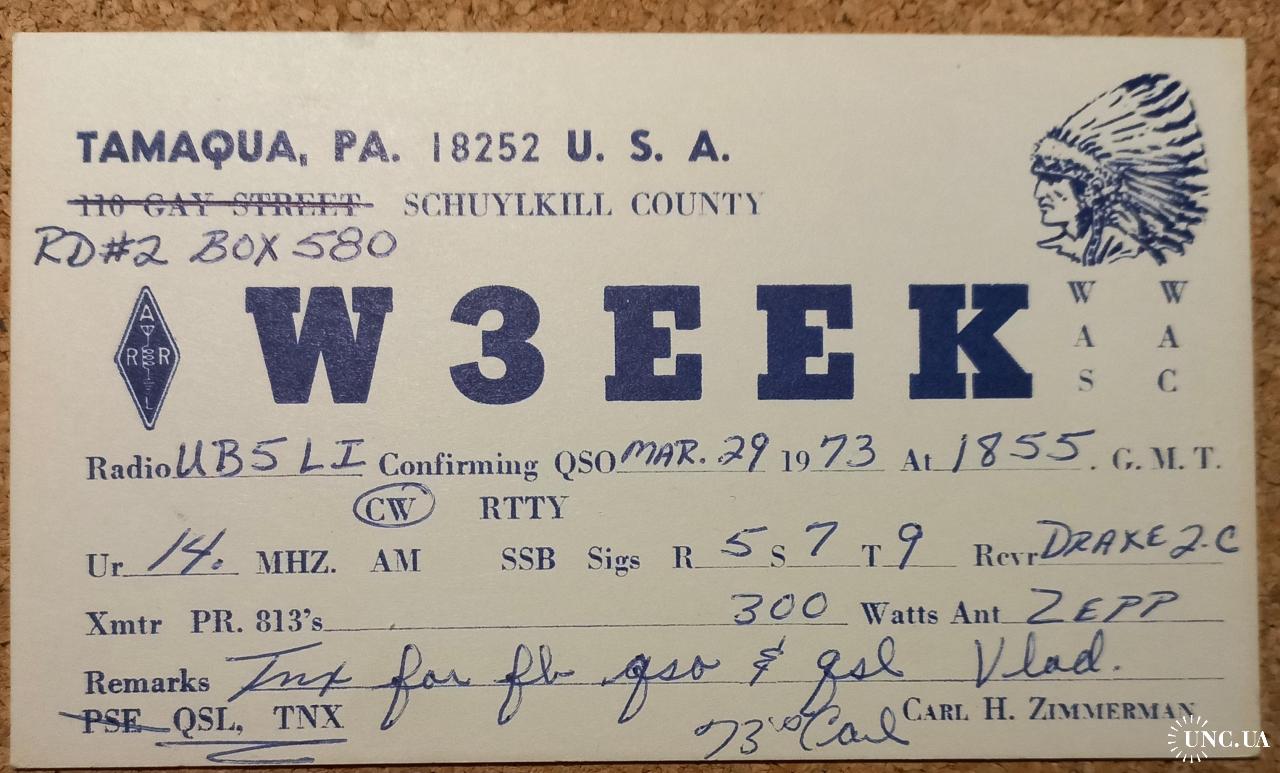 TAMAQUA, PA. 18252 U. S. A.
110 GAY STREET SCHUYLKILL COUNTY
RD#2 BOX 580
A
R R
L
W3EEK
W W
A A
S C
Radio UB5LI Confirming QSO MAR. 29 1973 At 1855. G. M. T.
CW RTTY
Ur 14. MHZ. AM SSB Sigs R 5 S 7 T 9 Rcvr DRAKE 2-C
Xmtr PR. 813's 300 Watts Ant ZEPP
Remarks Tnx for fb qso & qsl Vlad.
PSE QSL, TNX 73's Carl CARL H. ZIMMERMAN
UNC.UA